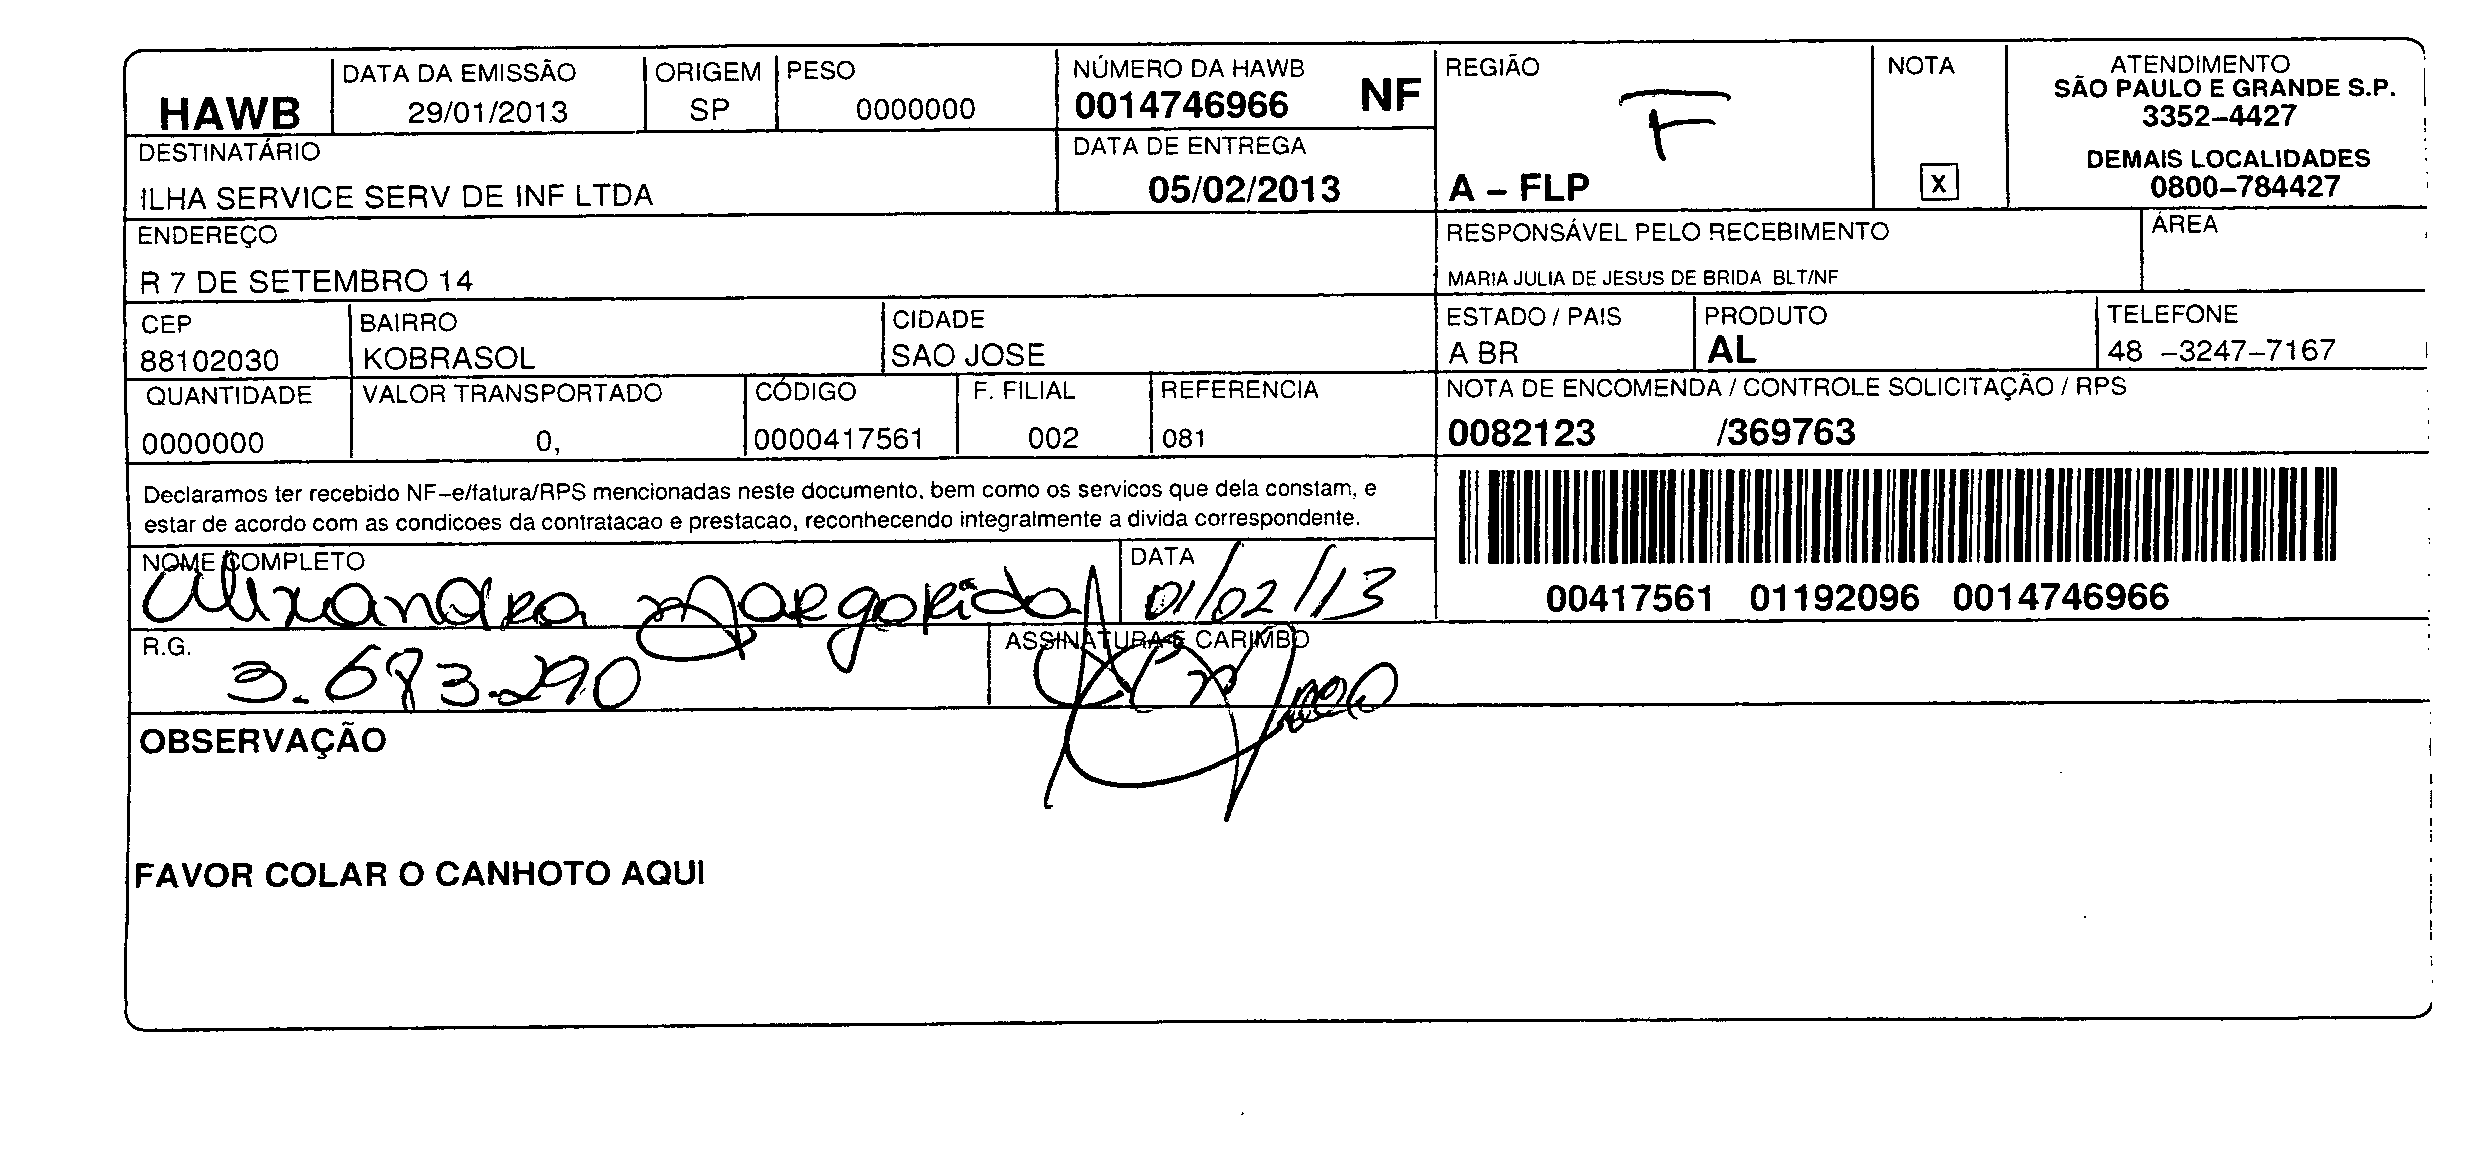 HAWB
DATA DA EMISSÃO
29/01/2013
ORIGEM
SP
PESO
0000000
NÚMERO DA HAWB
0014746966 NF
REGIÃO
F
A – FLP
NOTA
X
ATENDIMENTO
SÃO PAULO E GRANDE S.P.
3352–4427
DEMAIS LOCALIDADES
0800–784427
DESTINATÁRIO
ILHA SERVICE SERV DE INF LTDA
DATA DE ENTREGA
05/02/2013
ENDEREÇO
R 7 DE SETEMBRO 14
RESPONSÁVEL PELO RECEBIMENTO
MARIA JULIA DE JESUS DE BRIDA BLT/NF
ÁREA
CEP
88102030
BAIRRO
KOBRASOL
CIDADE
SAO JOSE
ESTADO / PAIS
A BR
PRODUTO
AL
TELEFONE
48 –3247–7167
QUANTIDADE
0000000
VALOR TRANSPORTADO
0,
CÓDIGO
0000417561
F. FILIAL
002
REFERENCIA
081
NOTA DE ENCOMENDA / CONTROLE SOLICITAÇÃO / RPS
0082123 /369763
Declaramos ter recebido NF–e/fatura/RPS mencionadas neste documento, bem como os servicos que dela constam, e
estar de acordo com as condicoes da contratacao e prestacao, reconhecendo integralmente a divida correspondente.
00417561 01192096 0014746966
NOME COMPLETO
Alixandra Margarida
DATA
01/02/13
R.G.
3.683.290
ASSINATURA E CARIMBO
OBSERVAÇÃO
FAVOR COLAR O CANHOTO AQUI